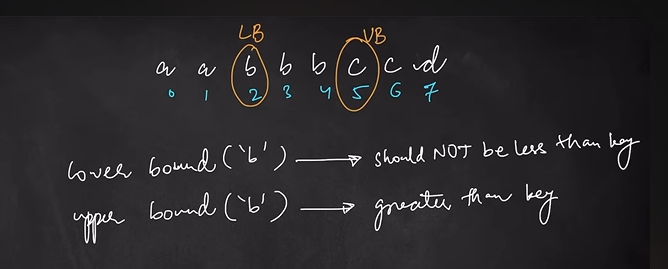 LB UB
a a b b b c c d
0 1 2 3 4 5 6 7
lower bound ('b') → should NOT be less than key
upper bound ('b') → greater than key